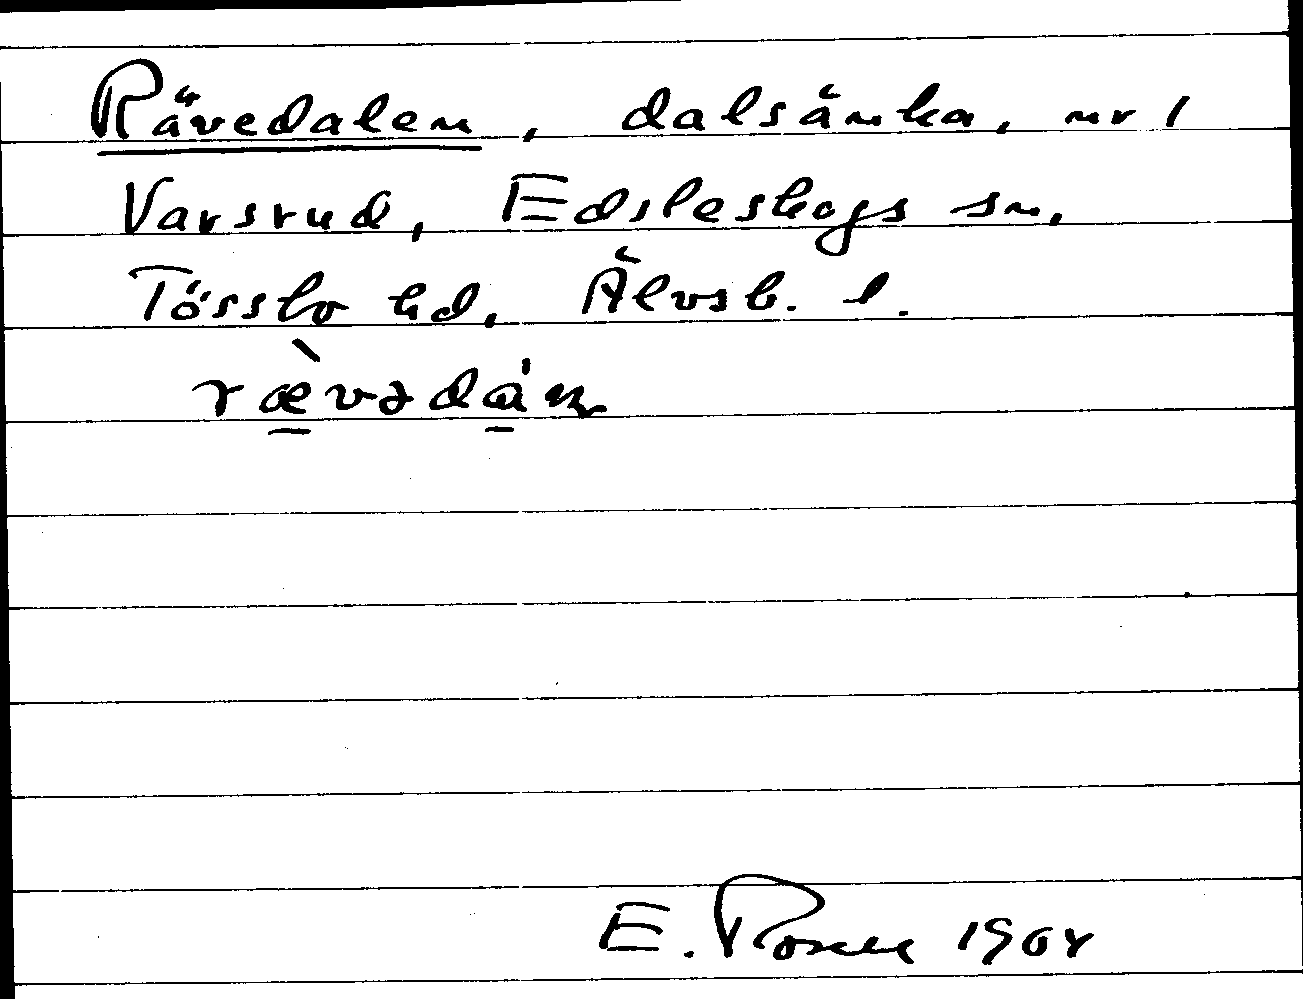 Rävedalen, dalsänka, nr 1
Varsrud, Edsleskogs sn,
Tössbo hd, Älvsb. l.
ræ̀vədán
E. Rosell 1904